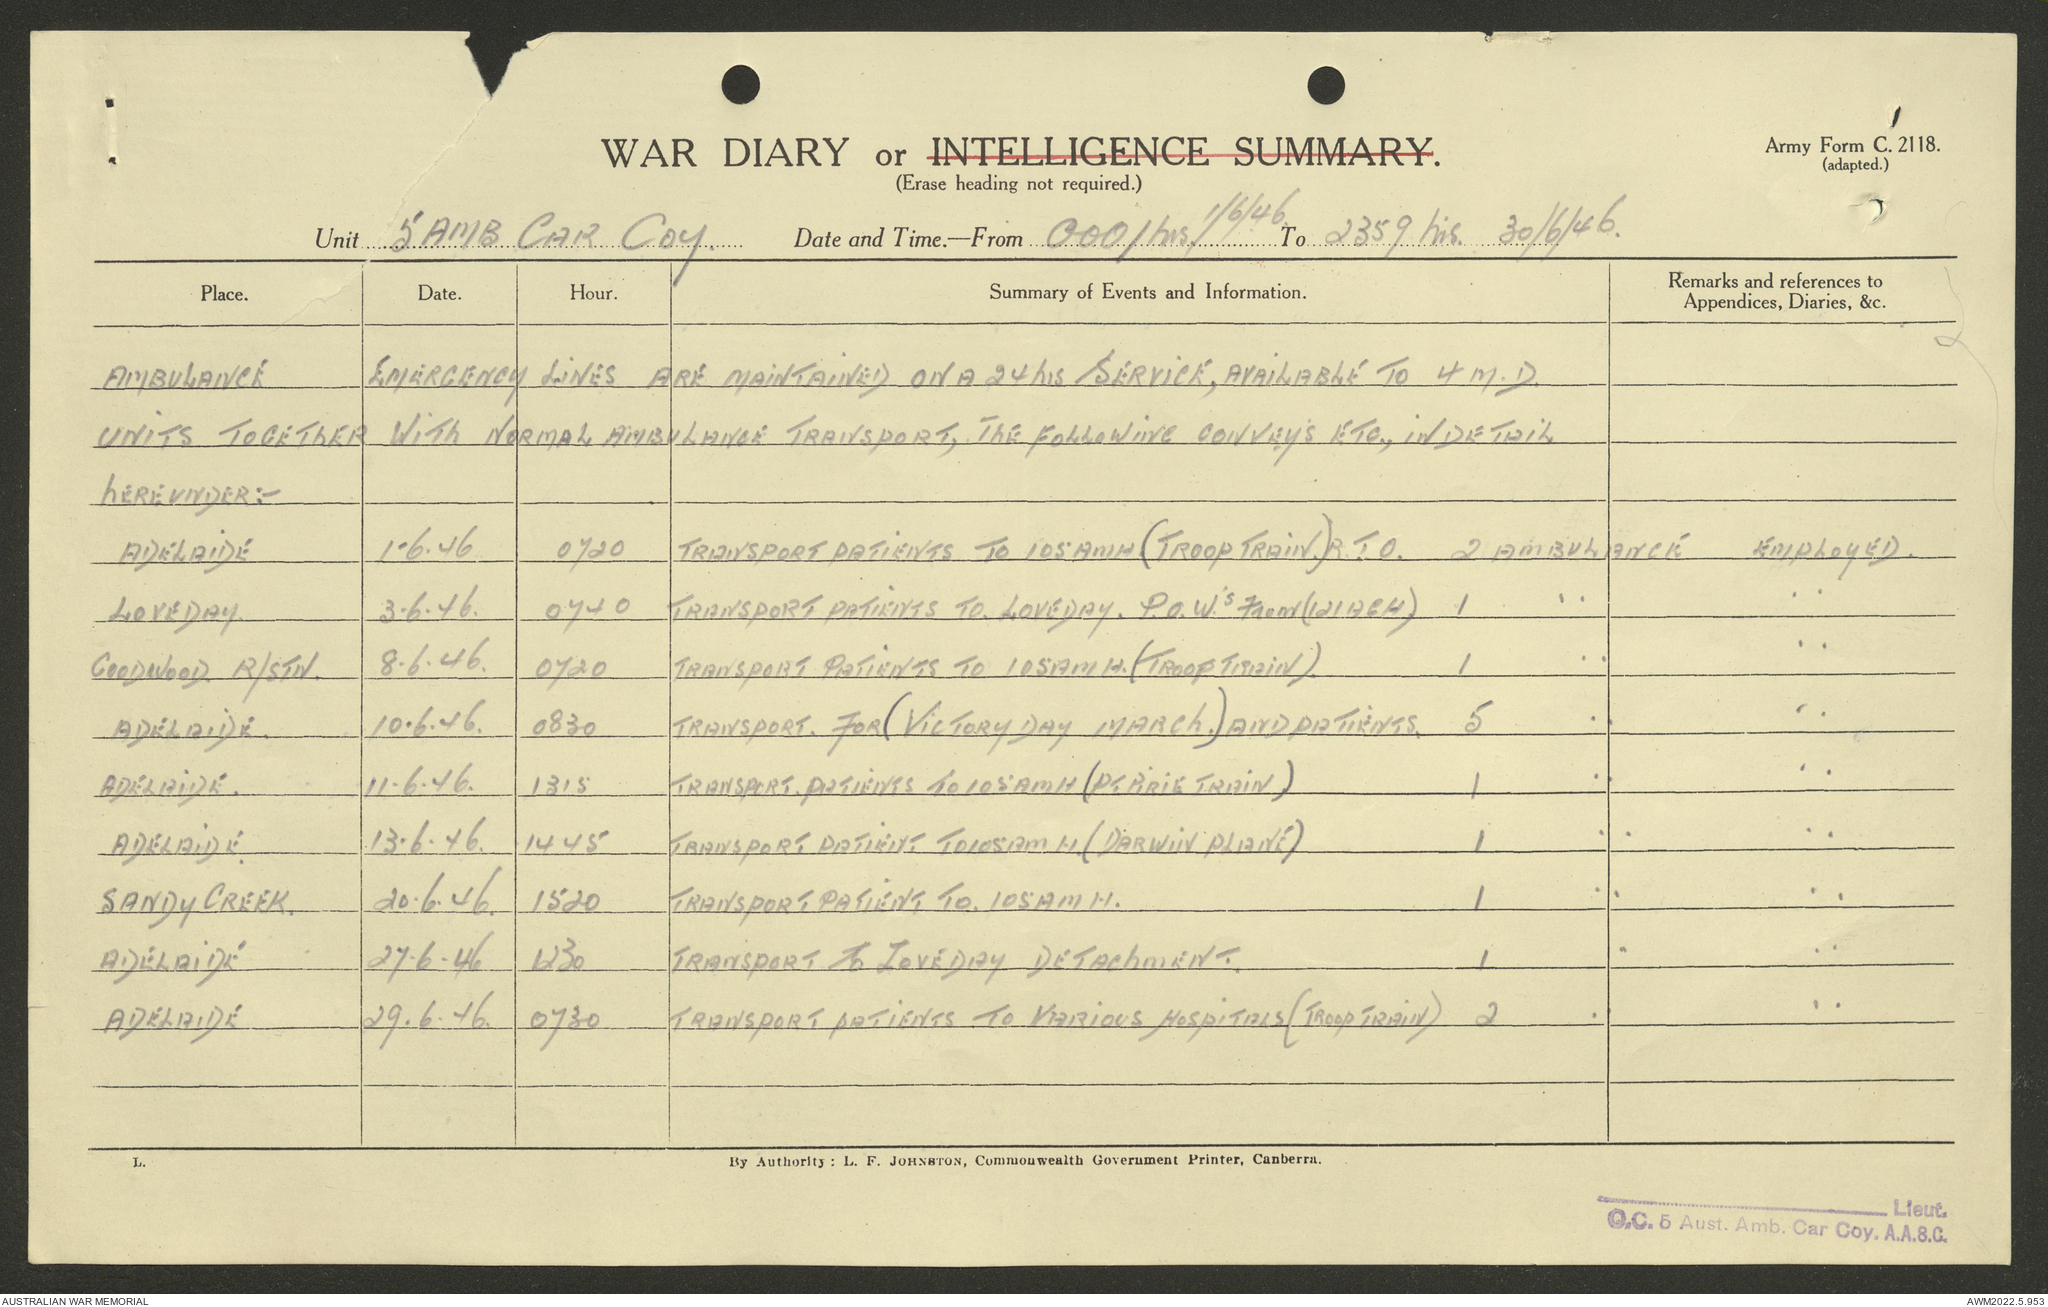 WAR DIARY or INTELLIGENCE SUMMARY.
(Erase heading not required.)
Army Form C. 2118.
(adapted.)
Unit 5 AMB CAR COY. Date and Time.—From 0001 hrs. 1/6/46. To 2359 hrs. 30/6/46.
Place. Date. Hour. Summary of Events and Information. Remarks and references to Appendices, Diaries, &c.
AMBULANCE EMERGENCY LINES ARE MAINTAINED ON A 24 hrs SERVICE, AVAILABLE TO 4 M.D.
UNITS TOGETHER WITH NORMAL AMBULANCE TRANSPORT, THE FOLLOWING CONVEY'S ETC., IN DETAIL
HEREUNDER:-
ADELAIDE 1-6-46 0720 TRANSPORT PATIENTS TO 105 AMH (TROOP TRAIN.) R.T.O. 2 AMBULANCE EMPLOYED.
LOVEDAY. 3-6-46. 0740 TRANSPORT PATIENTS TO. LOVEDAY. P.O.W.'s FROM (121 AGH) 1 " "
GOODWOOD R/STN. 8-6-46. 0720 TRANSPORT PATIENTS TO 105 AMH. (TROOP TRAIN). 1 " "
ADELAIDE. 10-6-46. 0830 TRANSPORT. FOR (VICTORY DAY MARCH.) AND PATIENTS. 5 " "
ADELAIDE. 11-6-46. 1315 TRANSPORT. PATIENTS TO 105 AMH (PT PIRIE TRAIN) 1 " "
ADELAIDE. 13-6-46. 1445 TRANSPORT PATIENT TO 105 AMH. (DARWIN PLANE) 1 " "
SANDY CREEK. 20-6-46. 1520 TRANSPORT PATIENT TO. 105 AMH. 1 " "
ADELAIDE 27-6-46 1230 TRANSPORT TO LOVEDAY DETACHMENT. 1 " "
ADELAIDE 29-6-46. 0730 TRANSPORT PATIENTS TO VARIOUS HOSPITALS (TROOP TRAIN) 2 " "
L. By Authority: L. F. JOHNSTON, Commonwealth Government Printer, Canberra.
Lieut.
O.C. 5 Aust. Amb. Car Coy. A.A.S.C.
AUSTRALIAN WAR MEMORIAL AWM2022.5.953